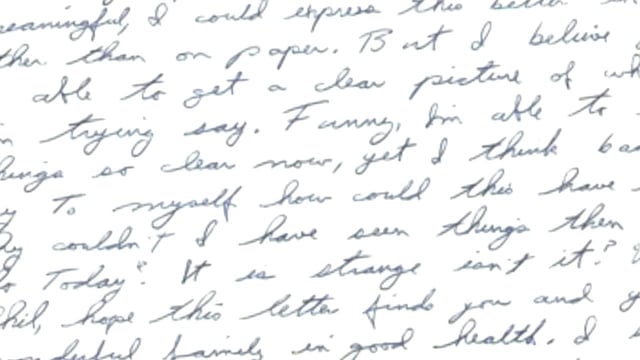 meaningful, I could express this better in
than on paper. But I believe
able to get a clear picture of
trying say. Funny, I'm able to
things so clear now, yet I think
To myself how could this have
couldn't I have seen things then
Today". It is strange isn't it?
hope this letter finds you and
family in good health. I